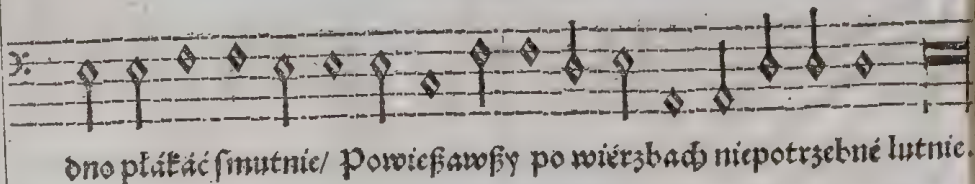 dno płákáć ſmutnie/ Powieſzawſzy po wiérzbach niepotrzebné lutnie.